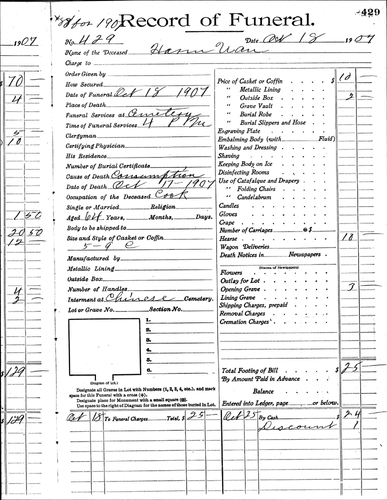 429
Record of Funeral.
No. 429 Date, Oct 18 1907
Name of the Deceased
Charge to
Order Given by
How Secured
Date of Funeral Oct 18 1907
Place of Death
Funeral Services at Cemetery
Time of Funeral Services 4 P M
Clergyman
Certifying Physician
His Residence
Number of Burial Certificate
Cause of Death Consumption
Date of Death Oct 17- 1907
Occupation of the Deceased Cook
Single or Married Religion
Aged 64 Years, Months, Days.
Body to be shipped to
Size and Style of Casket or Coffin
5-9 C
Manufactured by
Metallic Lining
Outside Box
Number of Handles
Interment at Chinese Cemetery.
Lot or Grave No. Section No.
1.
2.
3.
4.
5.
6.
(Diagram of Lot.)
Designate all Graves in Lot with Numbers (1, 2, 3, 4, etc.), and mark space for this Funeral with a cross (+).
Designate place for Monument with a small square (□).
Use space to the right of Diagram for the names of those buried in Lot.
Oct 18 To Funeral Charges Total, $ 25-
Price of Casket or Coffin $ 10
" Metallic Lining
" Outside Box 2
" Grave Vault
" Burial Robe
" Burial Slippers and Hose
Engraving Plate
Embalming Body (with Fluid)
Washing and Dressing
Shaving
Keeping Body on Ice
Disinfecting Rooms
Use of Catafalque and Drapery
" Folding Chairs
" Candelabrum
Candles
Gloves
Crape
Number of Carriages @ $
Hearse 10
Wagon Deliveries
Death Notices in Newspapers
(Names of Newspapers)
Flowers
Outlay for Lot
Opening Grave 3
Lining Grave
Shipping Charges, prepaid
Removal Charges
Cremation Charges
Total Footing of Bill $ 25-
By Amount Paid in Advance
Balance
Entered into Ledger, page or below.
Oct 25 By Cash $ 24
Discount 1
1907
70
4
5
10
1 50
20 50
12
4
2
$129
$129